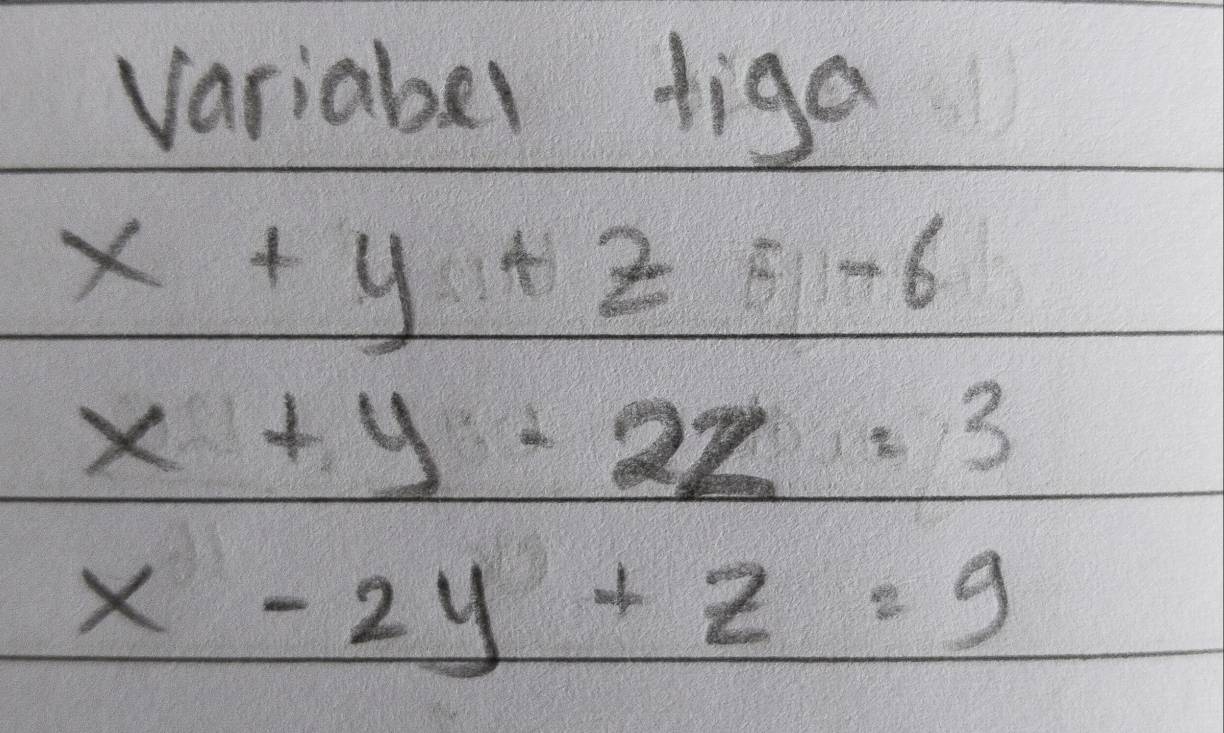 Variabel tiga
x + y + z = -6
x + y - 2z = 3
x - 2y + z = 9